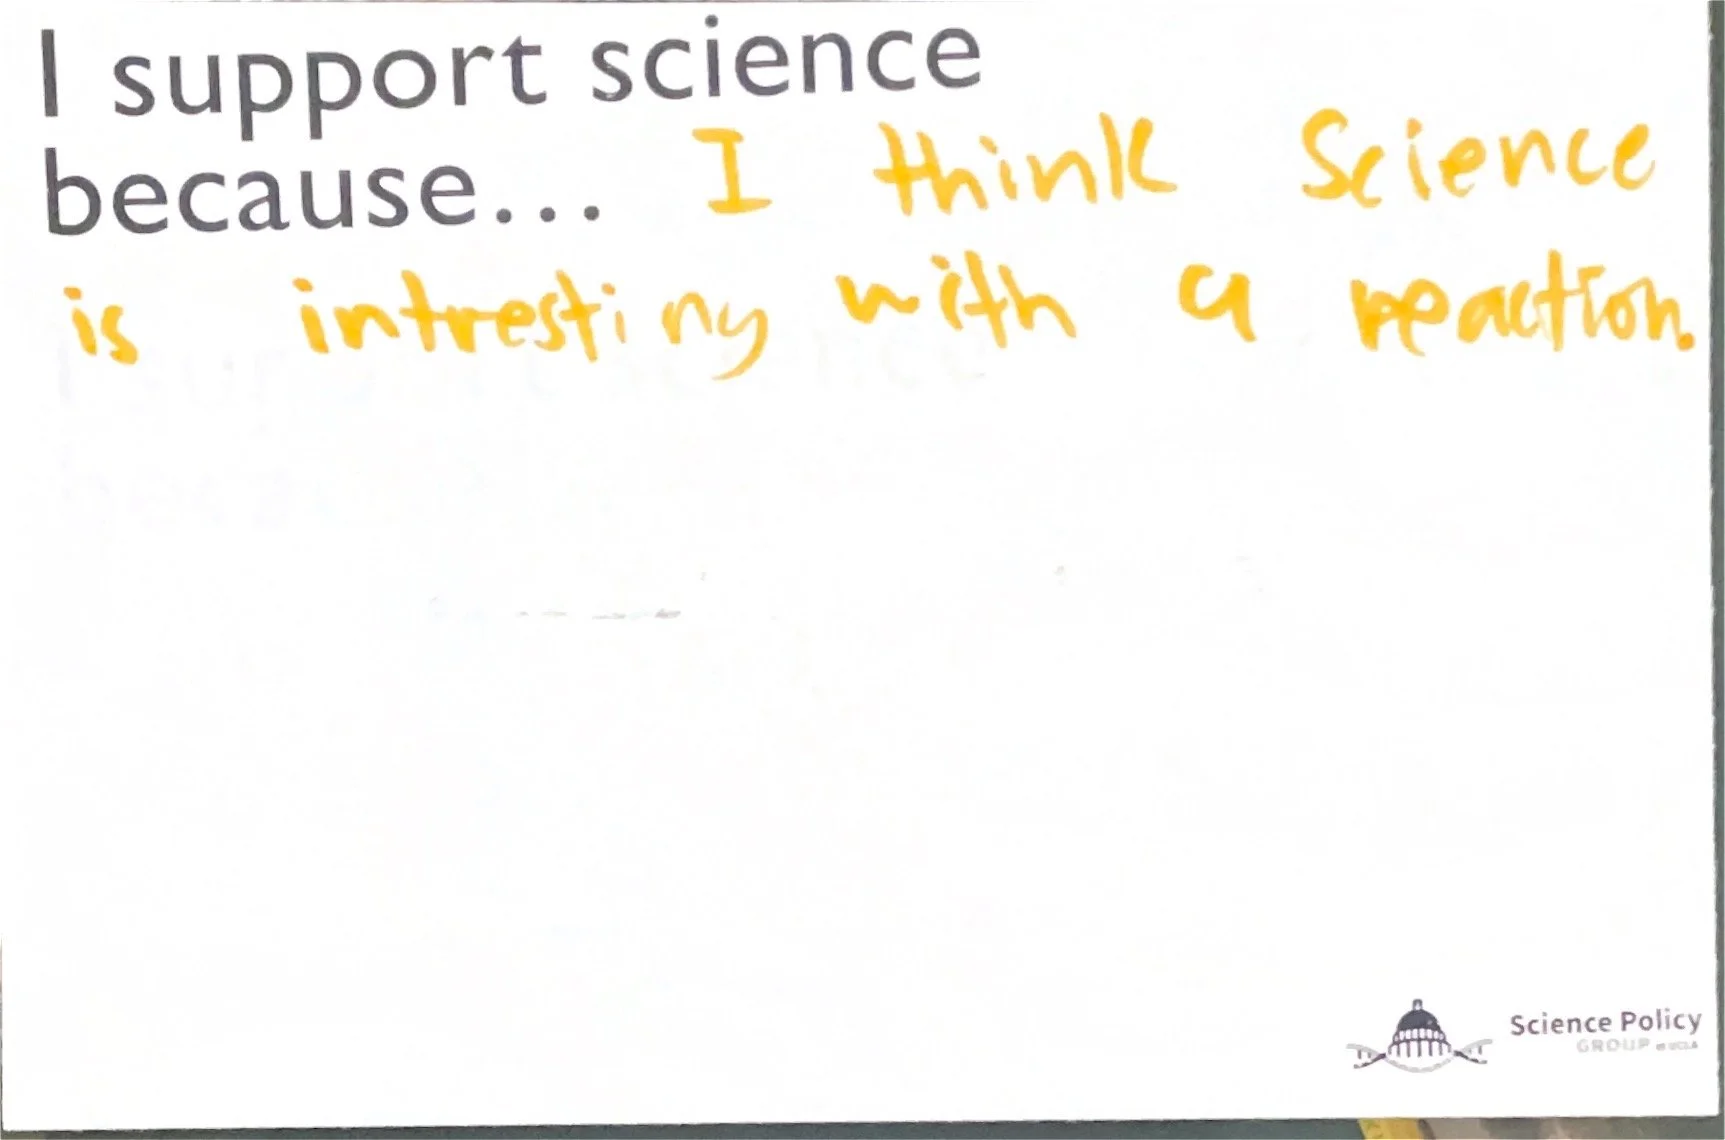 I support science
because... I think Science
is intresting with a reaction.
Science Policy
GROUP at UCLA